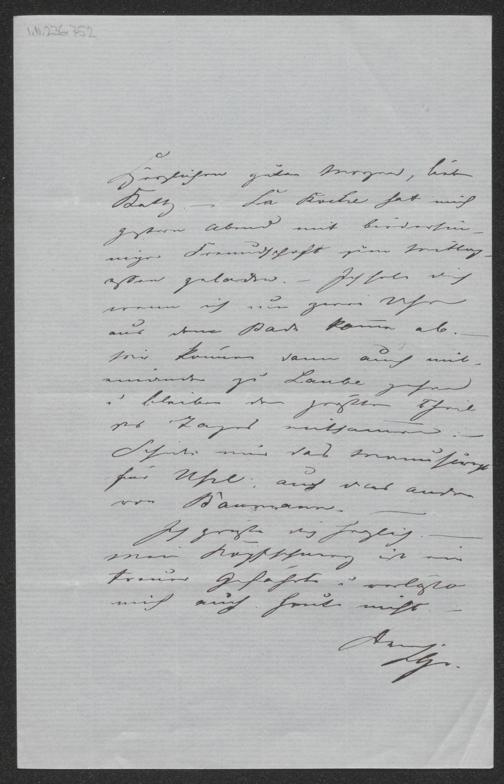 I.N. 236.752
Herzlichen guten Morgen, liebe
Betty. — La Roche hat mich
gestern Abend mit biedersin-
niger Freundschaft zum Mittag-
essen geladen. — Ich hole dich
wenn ich um zwei Uhr
aus dem Bade komme ab. —
wir können dann auch mit-
einander zu Laube gehen
u bleiben den größten Theil
des Tages mitsammen. —
Schicke mir das Manuscript
für Uhl. auch das andre
von Baumann. —
Ich grüße dich herzlich. —
mein Kopfschmerz ist ein
treuer Gefährte u verläßt
mich auch heute nicht —
Dein